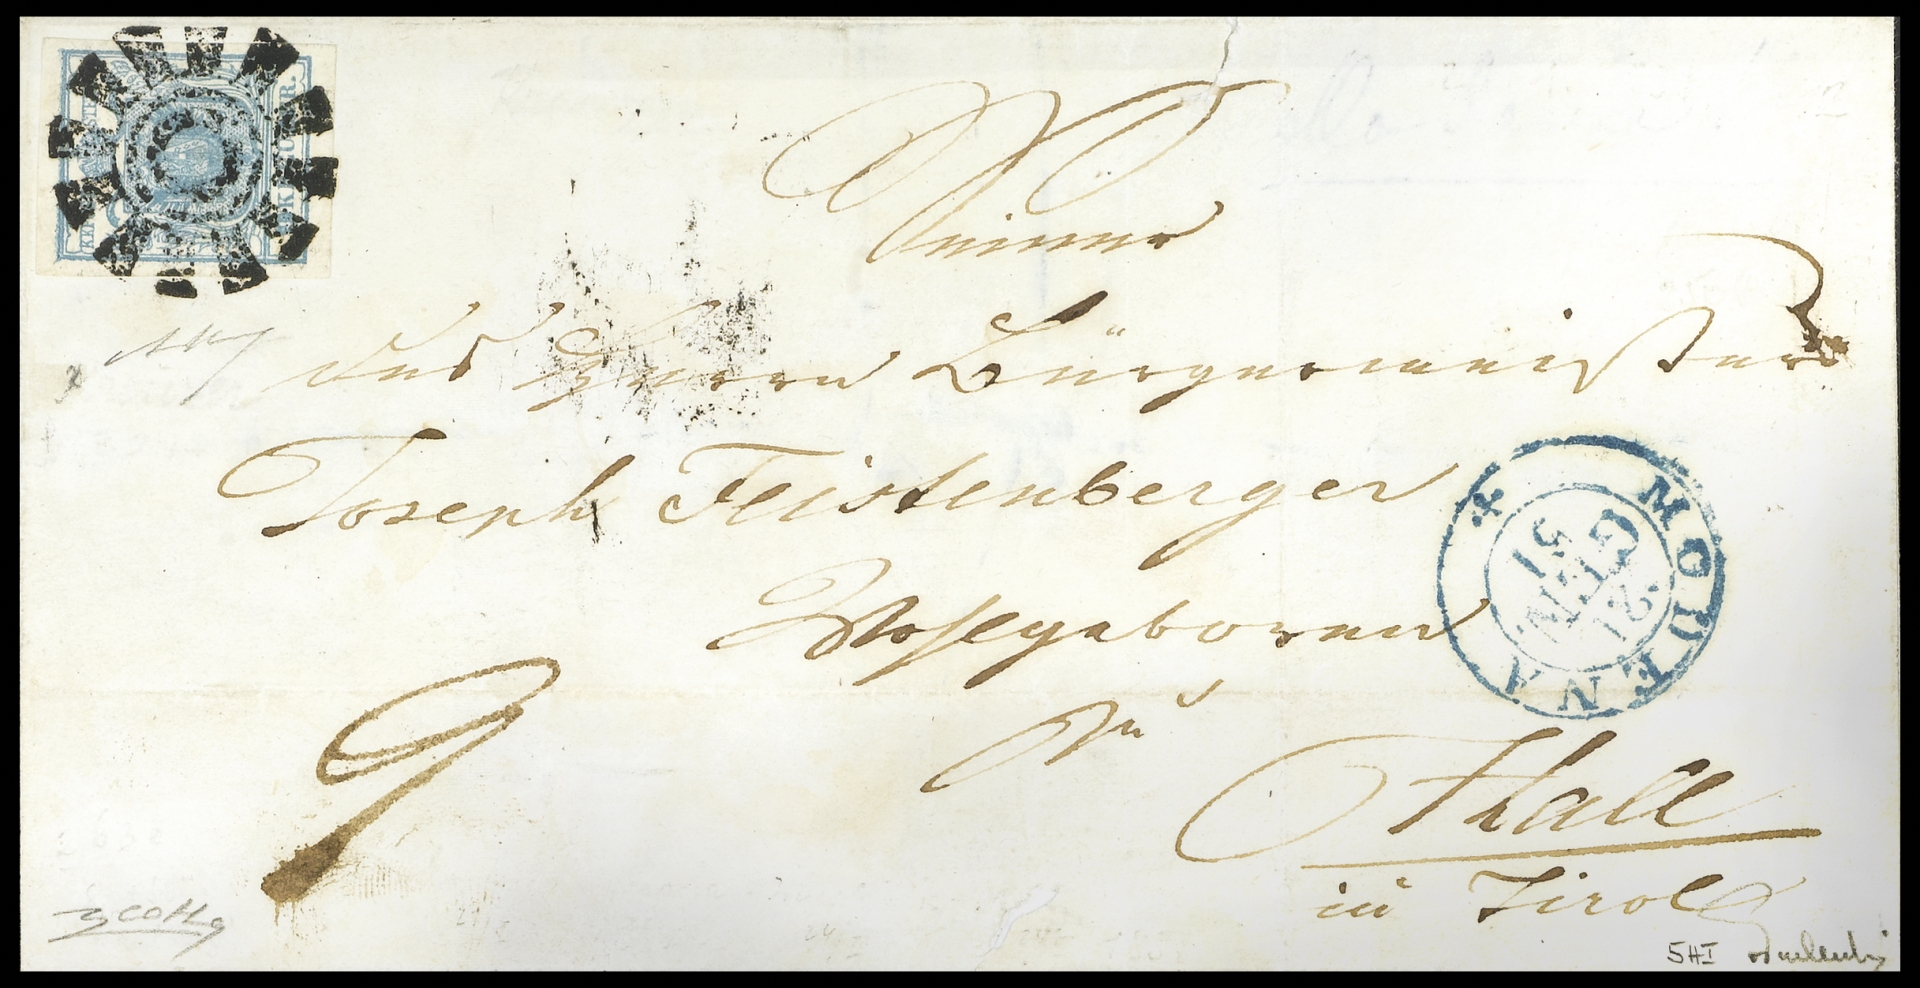 KREUZER.
Seiner
des Herrn Bürgermeisters
Joseph Feistenberger
Wohlgeboren
zu
Hall
in Tirol
9
MODENA
21
GEN
51
5HI